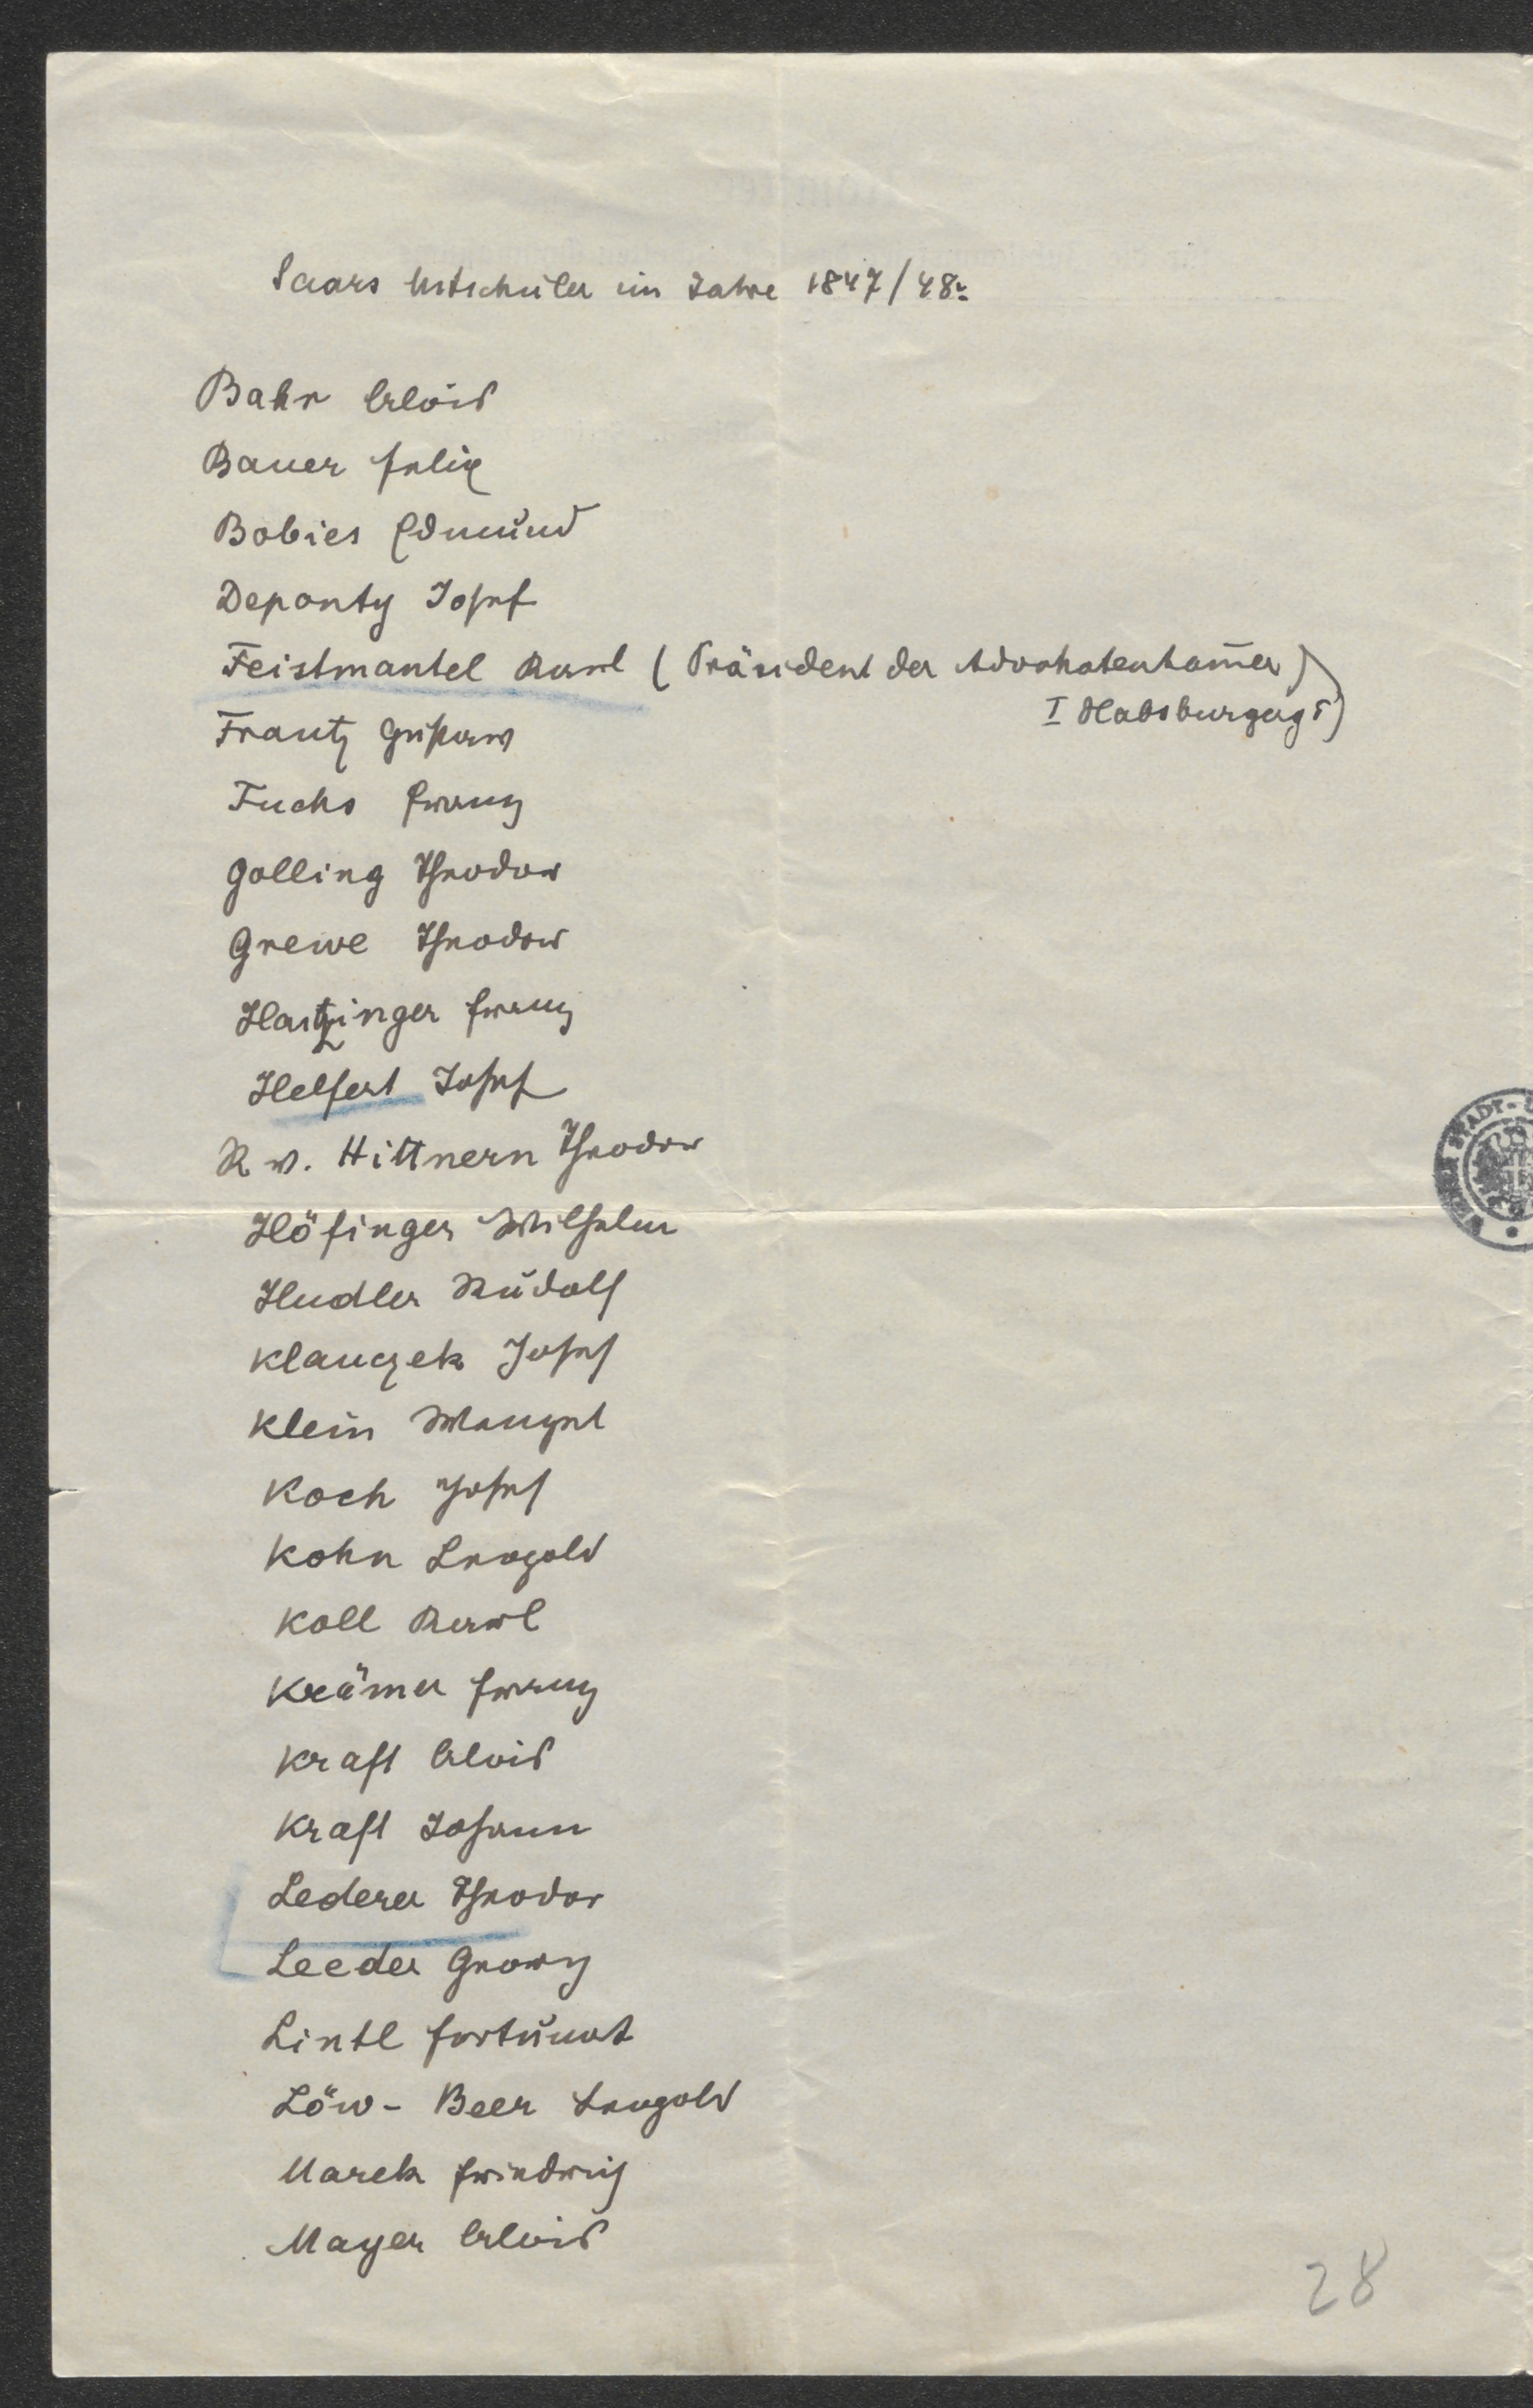 Saars Mitschüler im Jahre 1847/48:
Bahr Alois
Bauer Felix
Bobies Edmund
Deponty Josef
Feistmantel Karl (Präsident der Advokatenkam̄er)
I Habsburgerg 5)
Frantz Gustav
Fuchs Franz
Golling Theodor
Grewe Theodor
Hatzinger Franz
Helfert Josef
R v. Hittnern Theodor
Höfinger Wilhelm
Hudler Rudolf
Klauczek Josef
Klein Wenzel
Koch Josef
Kohn Leopold
Koll Karl
Krämer Franz
Kraft Alois
Kraft Johann
Lederer Theodor
Leeder Georg
Lintl Fortunat
Löw-Beer Leopold
Marek Friedrich
Mayer Alois
28